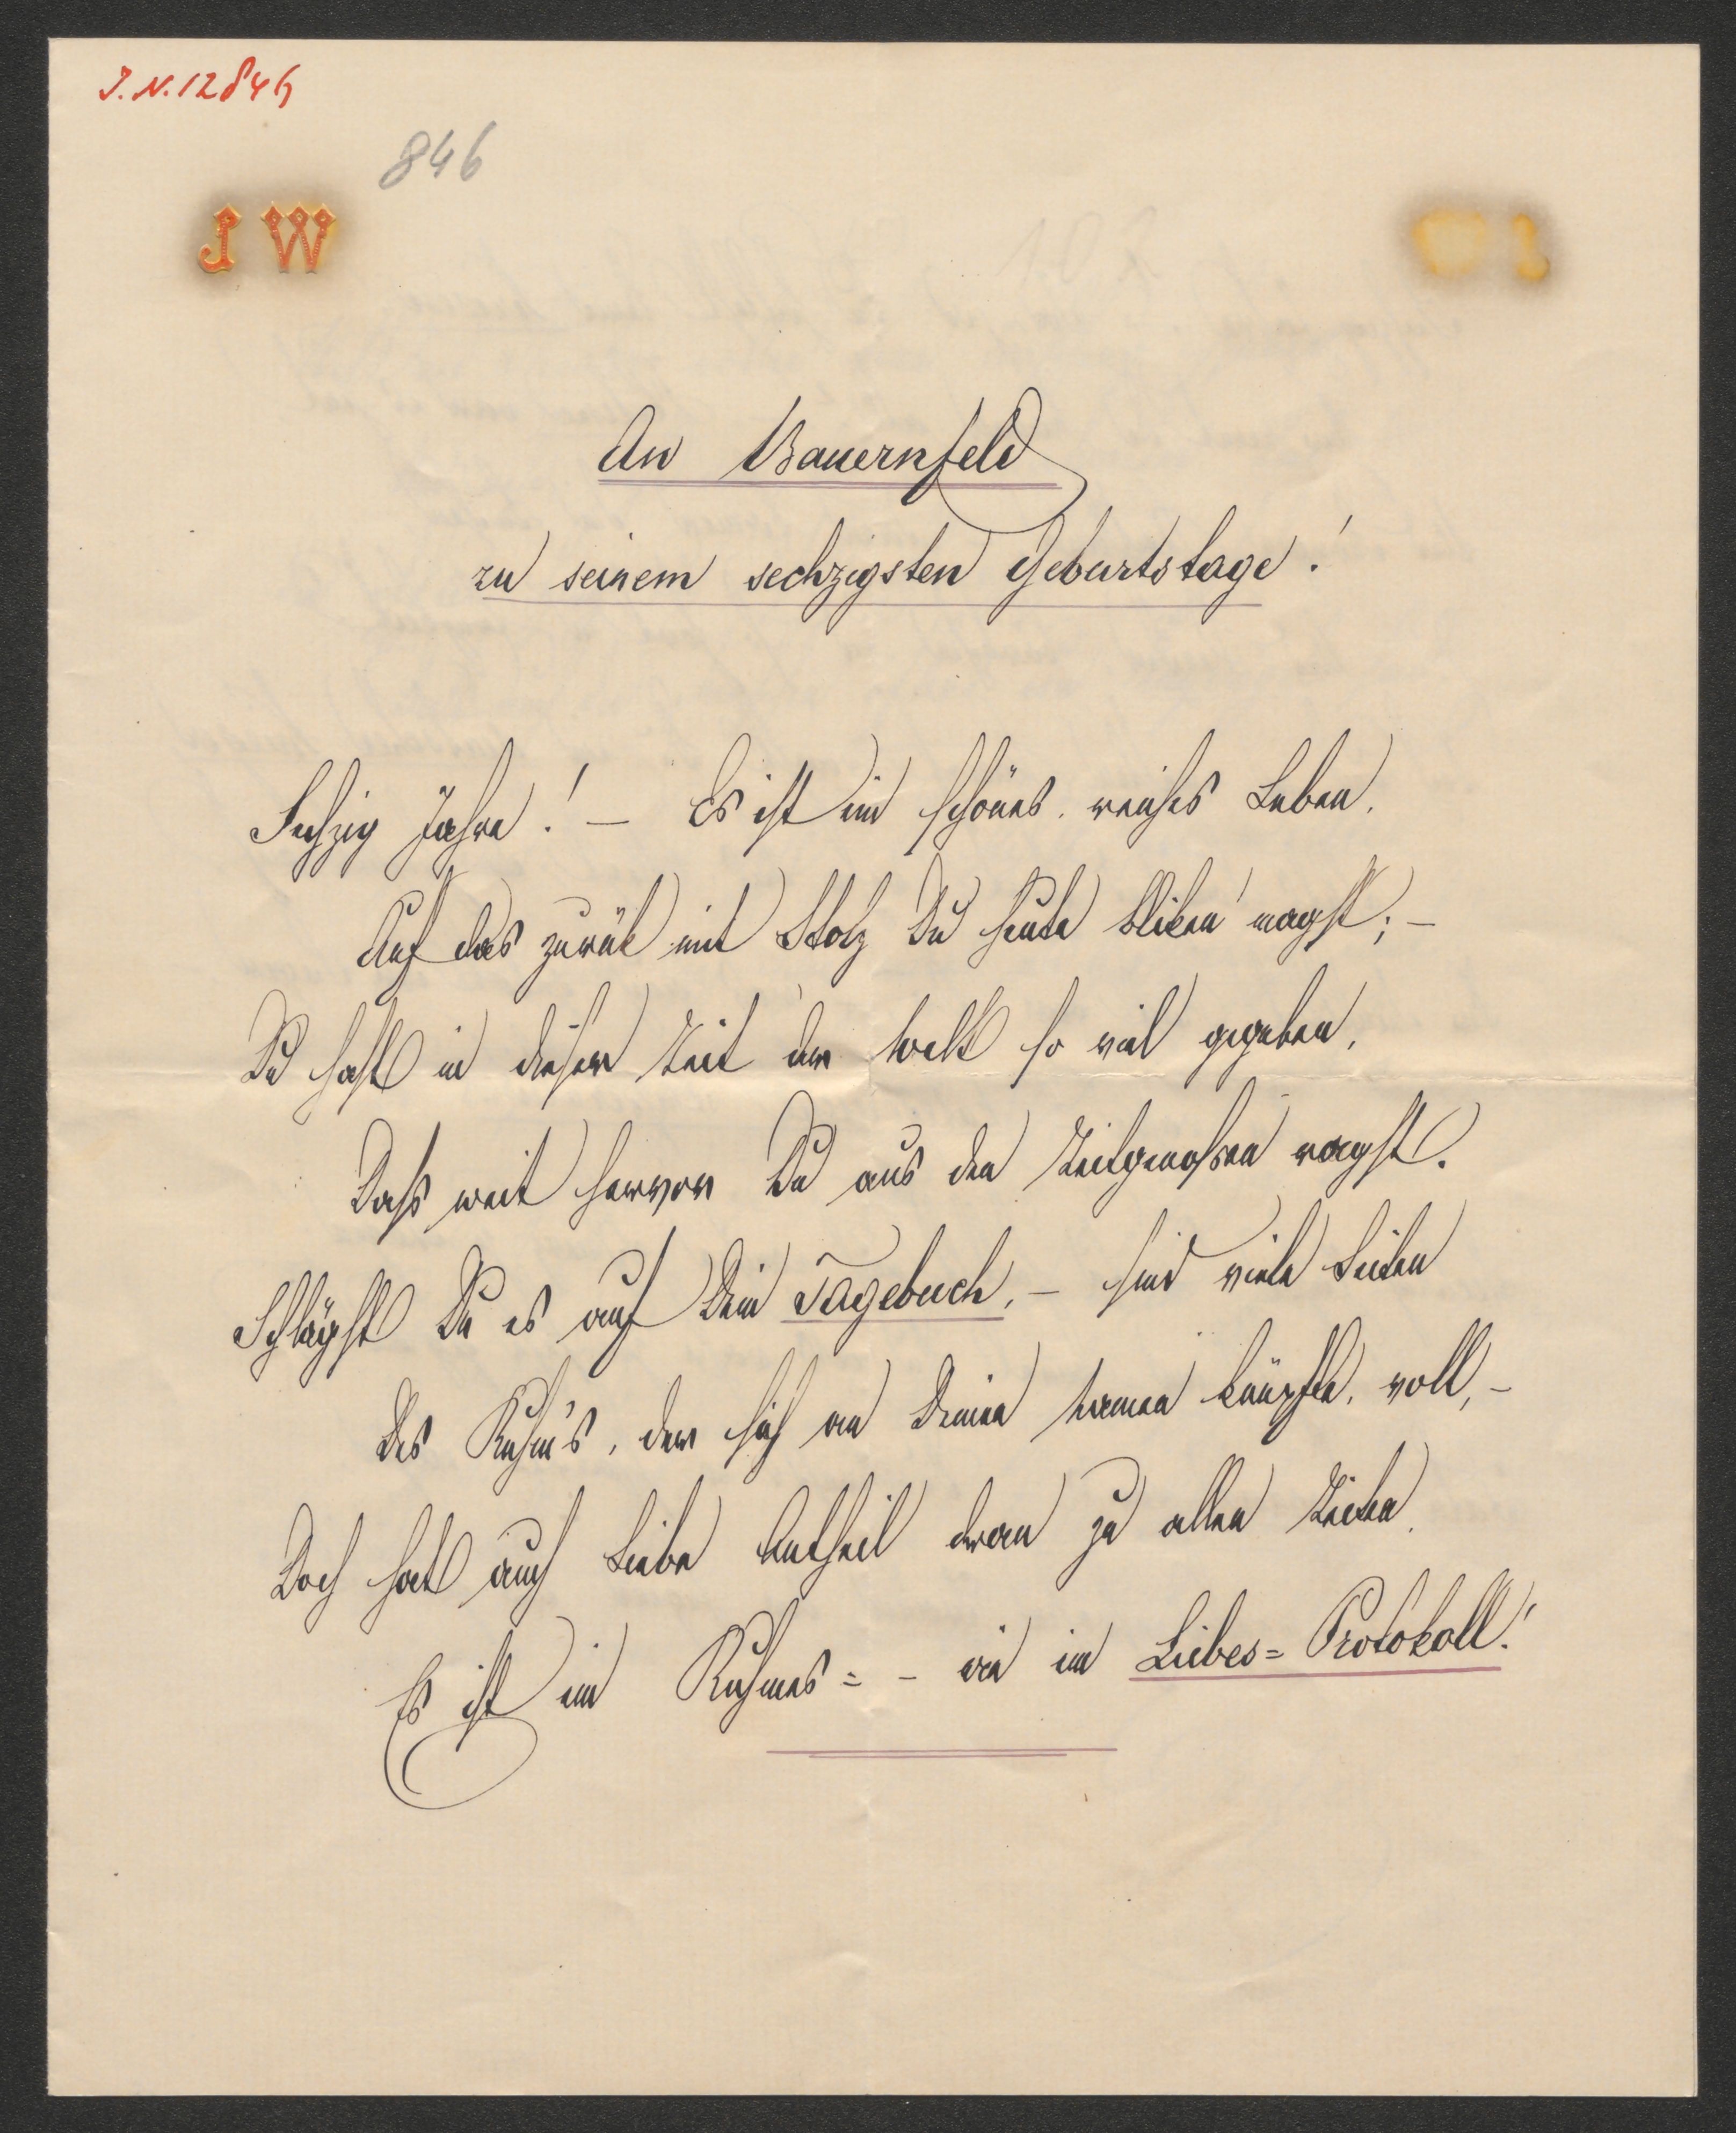 J.N. 12846
846
J W
An Bauernfeld
zu seinem sechzigsten Geburtstage!
Sechzig Jahre! – Es ist ein schönes, reiches Leben,
Auf das zurük mit Stolz Du heute bliken magst; –
Du hast in dieser Zeit der Welt so viel gegeben,
Daß weit hervor Du aus den Zeitgenoßen ragst.
Schlägst Du es auf Dein Tagebuch, – sind viele Seiten
Des Ruhm's, der sich an Deinen Namen knüpfte, voll, –
Doch hat auch Liebe Antheil dran zu allen Zeiten,
Es ist ein Ruhmes= – wie ein Liebes=Protokoll!